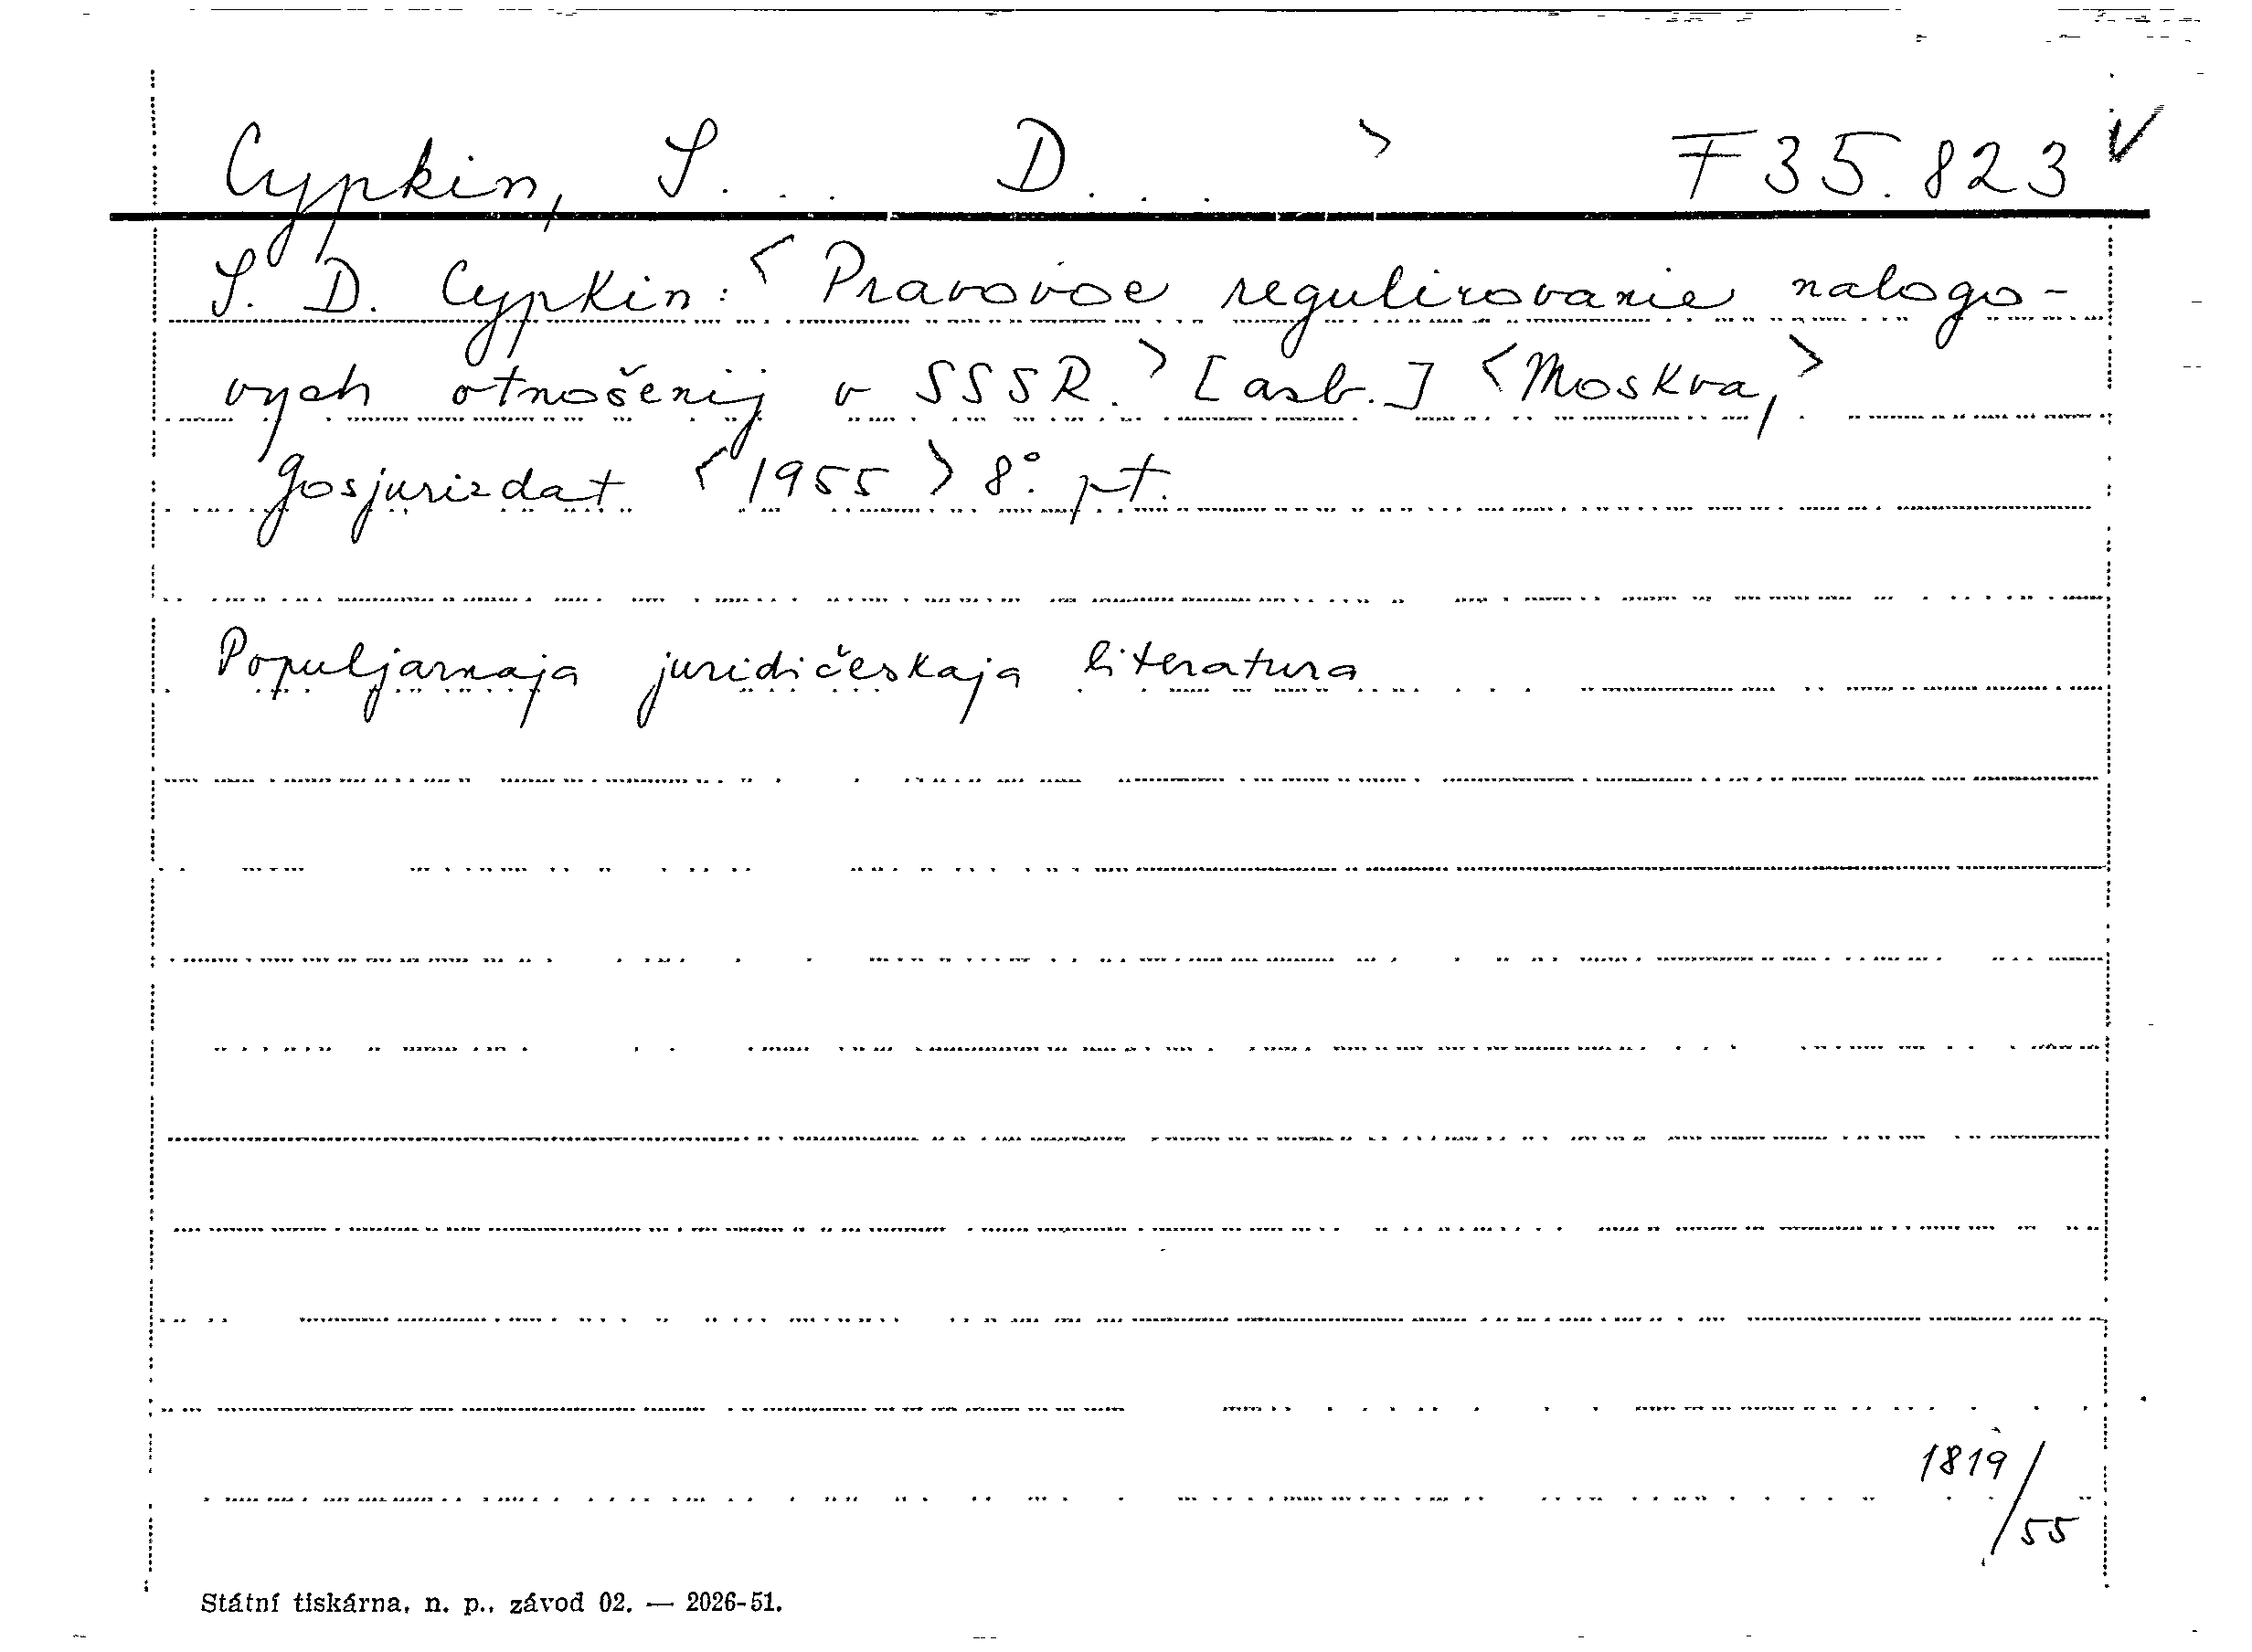 Cypkin, S... D... > F 35.823 V
S. D. Cypkin: < Pravovoe regulirovanie nalogo-
vych otnošenij v SSSR. > [asb.] < Moskva, >
Gosjurizdat < 1955 > 8°. pt.
Populjarnaja juridičeskaja literatura
1819/55
Státní tiskárna, n. p., závod 02. — 2026-51.